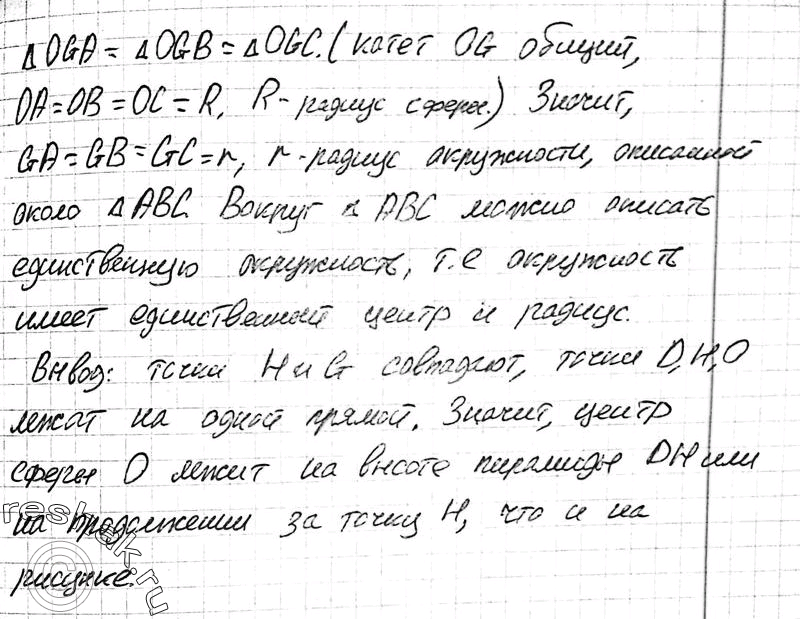 △OGA = △OGB = △OGC. (катет OG общий,
OA=OB=OC=R, R-радиус сферы.) Значит,
GA=GB=GC=r, r-радиус окружности, описанной
около △ABC. Вокруг △ABC можно описать
единственную окружность, т.е окружность
имеет единственный центр и радиус.
Вывод: точки H и G совпадают, точки D,H,O
лежат на одной прямой. Значит, центр
сферы O лежит на высоте пирамиды DH или
на продолжении за точку H, что и на
рисунке.
reshak.ru